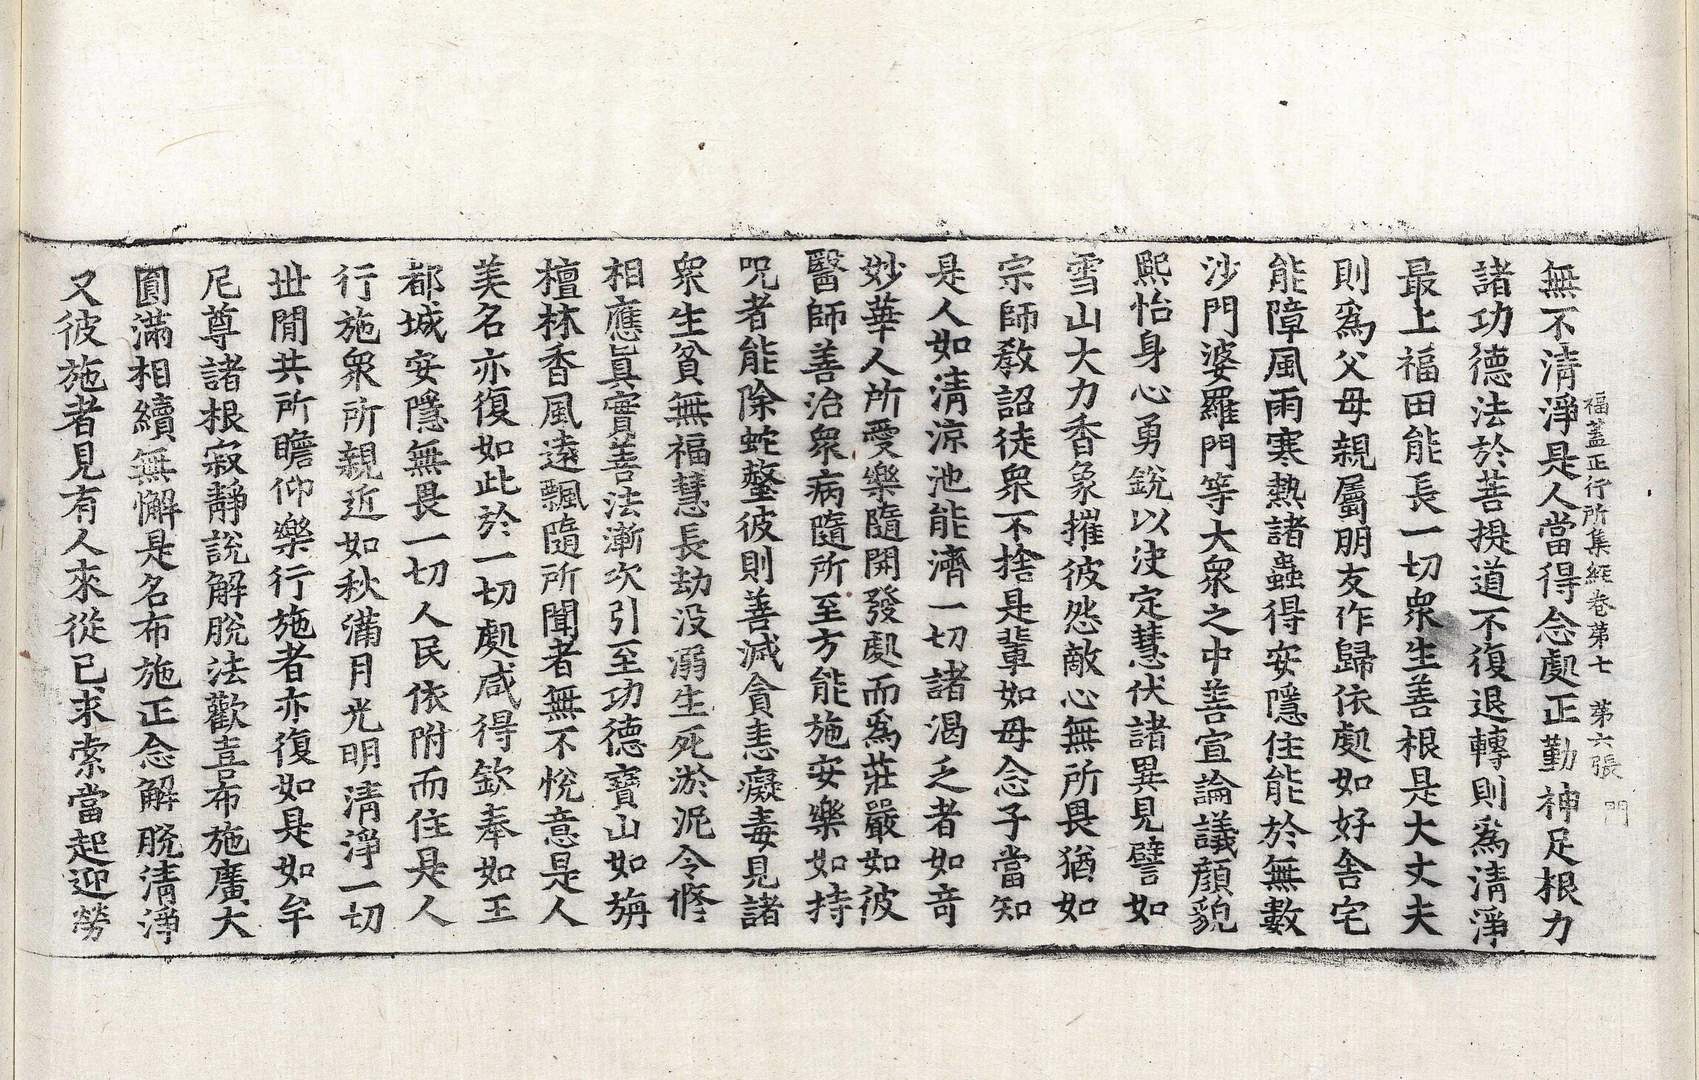 福蓋正行所集經卷第七　第六張　門
無不清淨是人當得念處正勤神足根力
諸功德法於菩提道不復退轉則爲清淨
最上福田能長一切衆生善根是大丈夫
則爲父母親屬朋友作歸依處如好舍宅
能障風雨寒熱諸蟲得安隱住能於無數
沙門婆羅門等大衆之中善宣論議顏貌
熙怡身心勇銳以決定慧伏諸異見譬如
雪山大力香象摧彼怨敵心無所畏猶如
宗師敎詔徒衆不捨是輩如母念子當知
是人如淸涼池能濟一切諸渴乏者如奇
妙華人所愛樂隨開發處而爲莊嚴如彼
醫師善治衆病隨所至方能施安樂如持
呪者能除蛇螫彼則善滅貪恚癡毒見諸
衆生貧無福慧長劫没溺生死淤泥令修
相應眞實善法漸次引至功德寶山如旃
檀林香風遠飄隨所聞者無不悅意是人
美名亦復如此於一切處咸得欽奉如王
都城安隱無畏一切人民依附而住是人
行施衆所親近如秋滿月光明清淨一切
世閒共所瞻仰樂行施者亦復如是如牟
尼尊諸根寂靜說解脫法歡喜布施廣大
圓滿相續無懈是名布施正念解脫清淨
又彼施者見有人來從已求索當起迎勞